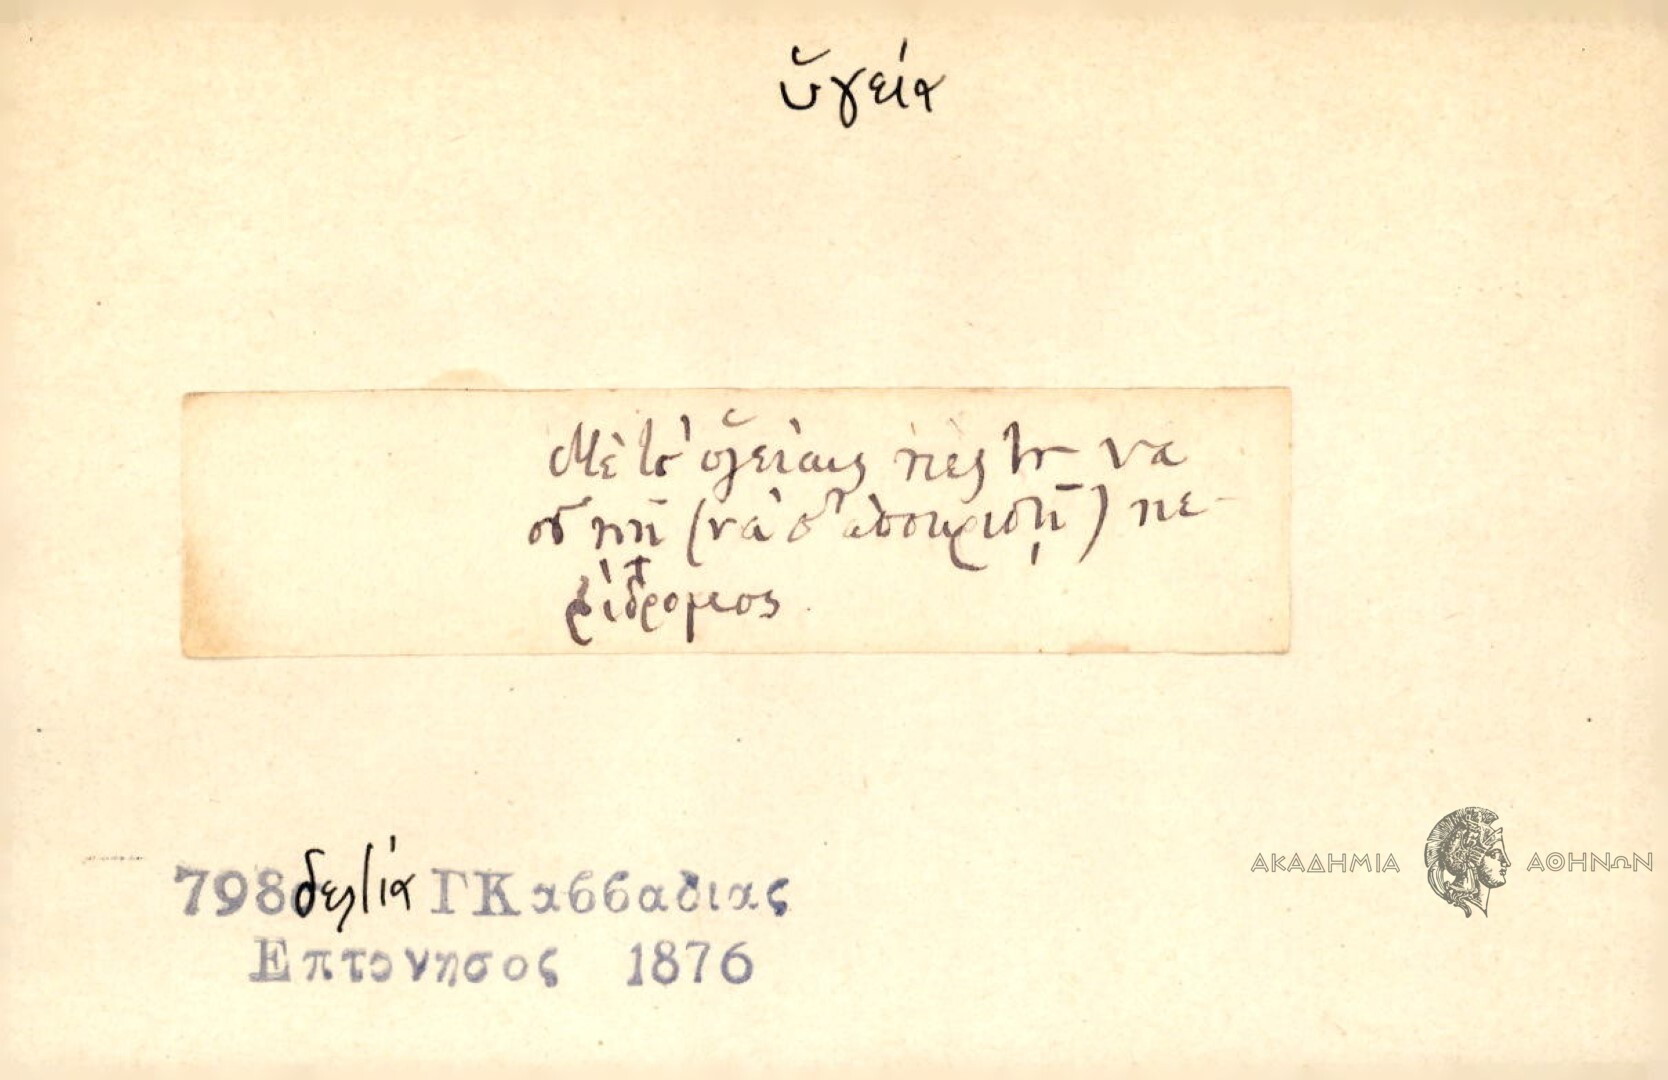 ὑγεία
Μὲ τσ' ὑγείαις πές το να
σοῦ πῇ (νὰ σ' ἀποκριθῇ) πε-
ρίδρομος.
798 δελτία ΓΚασσαδιας
Επτονησος 1876
ΑΚΑΔΗΜΙΑ ΑΘΗΝΩΝ